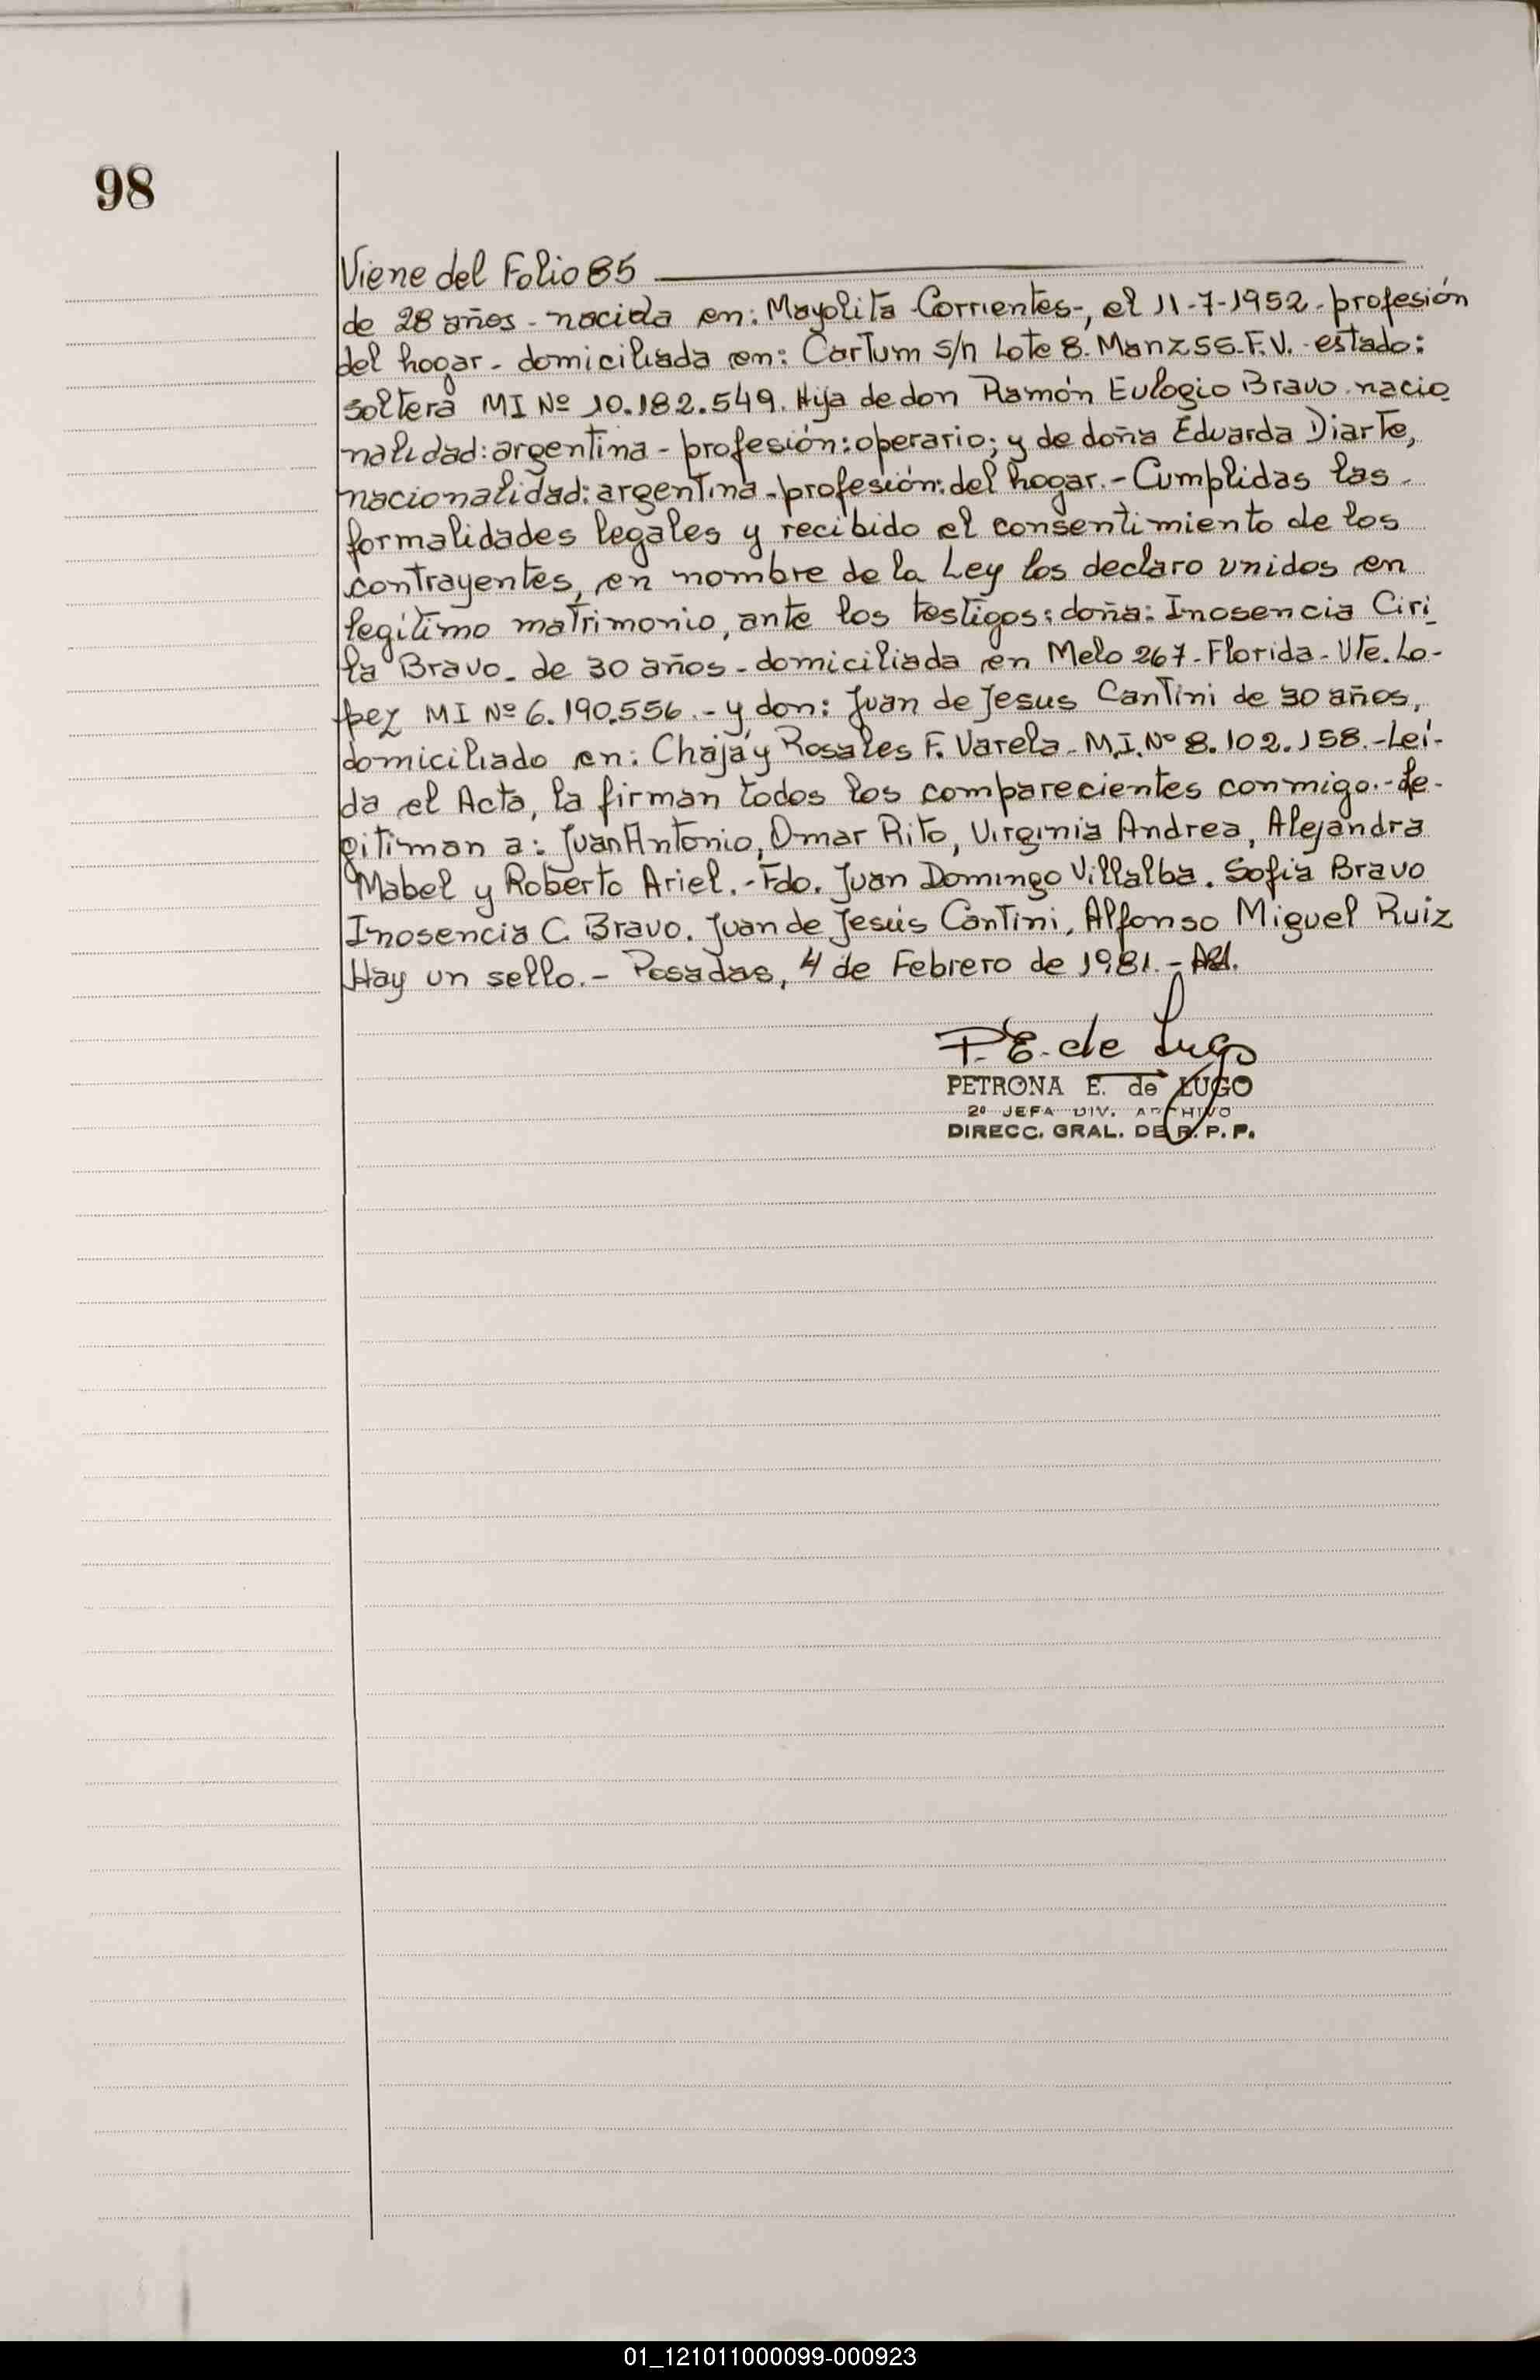 98
Viene del Folio 85
de 28 años - nacida en: Mayolita - Corrientes -, el 11-7-1952 - profesión
del hogar - domiciliada en: Cartum s/n Lote 8. Manz 56. F.V. - estado:
soltera MI Nº 10.182.549. Hija de don Ramón Eulogio Bravo - nacio
nalidad: argentina - profesión: operario; y de doña Eduarda Diarte,
nacionalidad: argentina - profesión: del hogar. - Cumplidas las
formalidades legales y recibido el consentimiento de los
contrayentes, en nombre de la Ley los declaro unidos en
legítimo matrimonio, ante los testigos: doña: Inosencia Ciri_
la Bravo - de 30 años - domiciliada en Melo 267 - Florida - Vte. Lo-
pez MI Nº 6.190.556. - y don: Juan de Jesus Cantini de 30 años,
domiciliado en: Chajá y Rosales F. Varela - M.I. Nº 8.102.158. - Leí-
da el Acta, la firman todos los comparecientes conmigo. - Le-
gitiman a: Juan Antonio, Omar Rito, Virginia Andrea, Alejandra
Mabel y Roberto Ariel. - Fdo. Juan Domingo Villalba. Sofia Bravo
Inosencia C. Bravo. Juan de Jesús Cantini, Alfonso Miguel Ruiz
Hay un sello. - Posadas, 4 de Febrero de 1981. -
P. E. de Lugo
PETRONA E. de LUGO
2º JEFA DIV. ARCHIVO
DIRECC. GRAL. DE R. P. P.
01_121011000099-000923